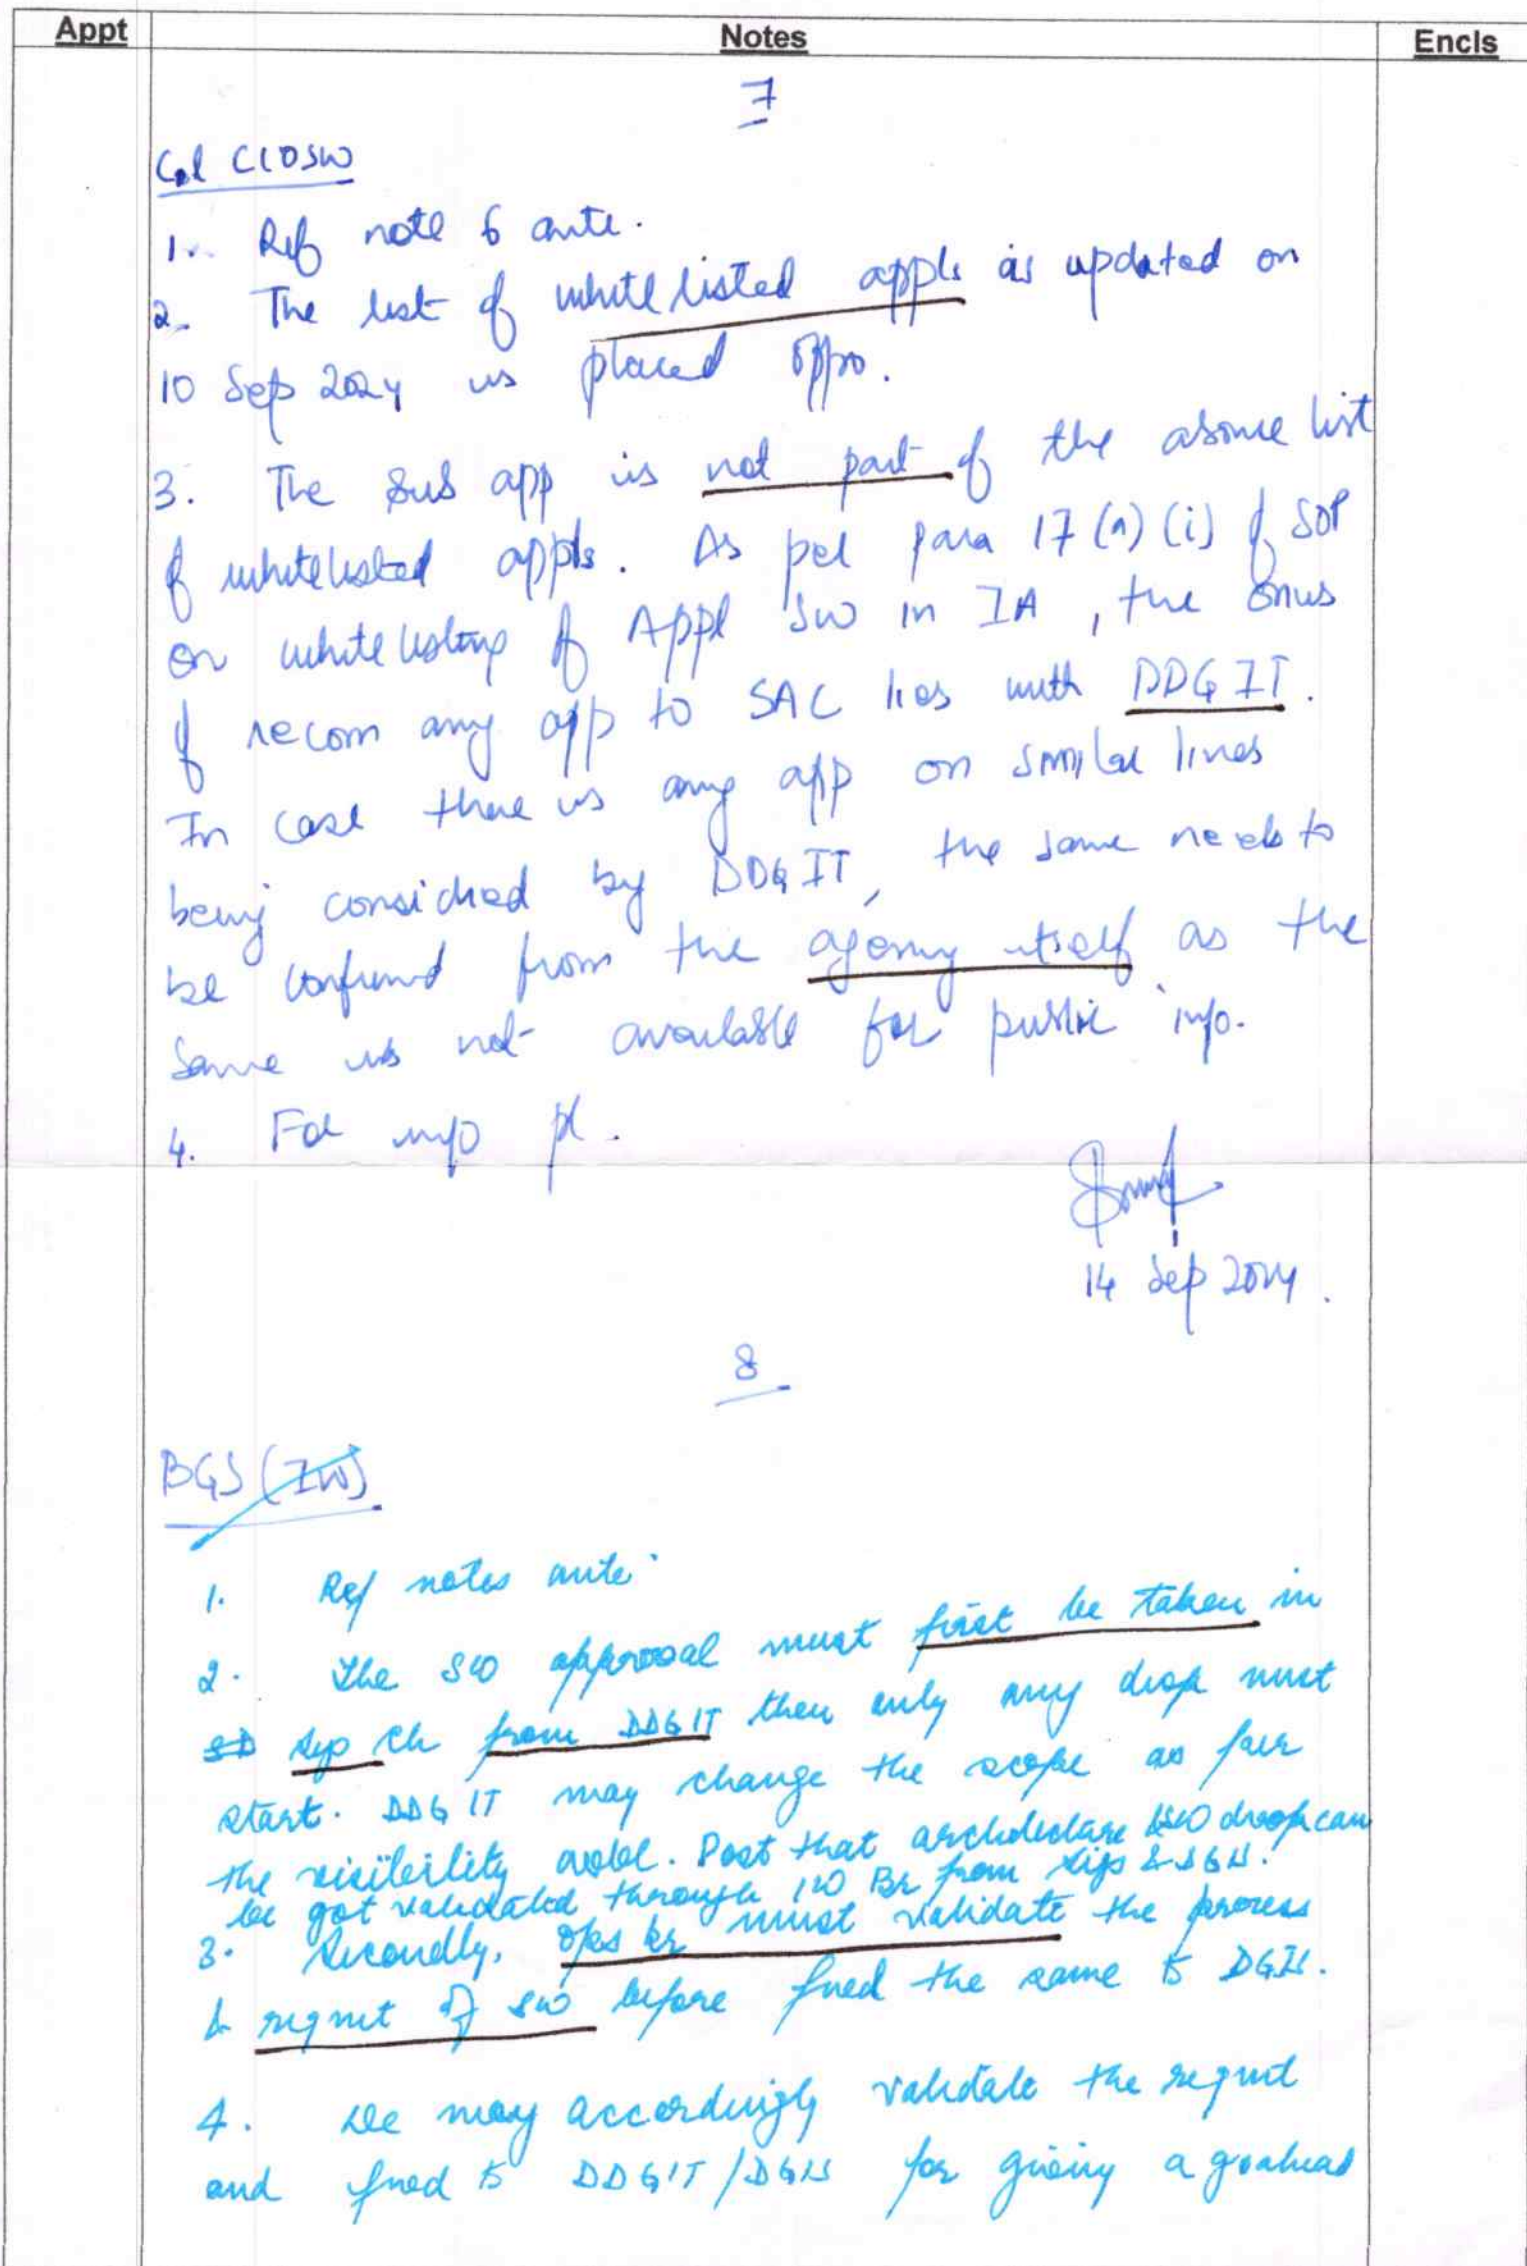 Appt Notes Encls
7
Col CIOSW
1. Ref note 6 ante.
2. The list of whitelisted appls as updated on
10 Sep 2024 is placed oppo.
3. The sub app is not part of the above list
of whitelisted appls. As per para 17 (a) (i) of SOP
on whitelisting of Appl SW in IA, the onus
of recom any app to SAC lies with DDG IT.
In case there is any app on similar lines
being considred by DDG IT, the same needs to
be confirmd from the agency itself as the
same is not available for public info.
4. For info pl.
14 Sep 2024.
8
BGS (IW)
1. Ref notes ante.
2. The SW approval must first be taken in
ch from DDGIT then only any drop must
start. DDG IT may change the scope as per
the visibility avlbl. Post that SW drop can
be got validated through IW Br from Sigs &
3. Secondly, ops br must validate the process
& reqmt of SW before fwd the same to DGIS.
4. We may accordingly validate the reqmt
and fwd to DDGIT/DGIS for giving a